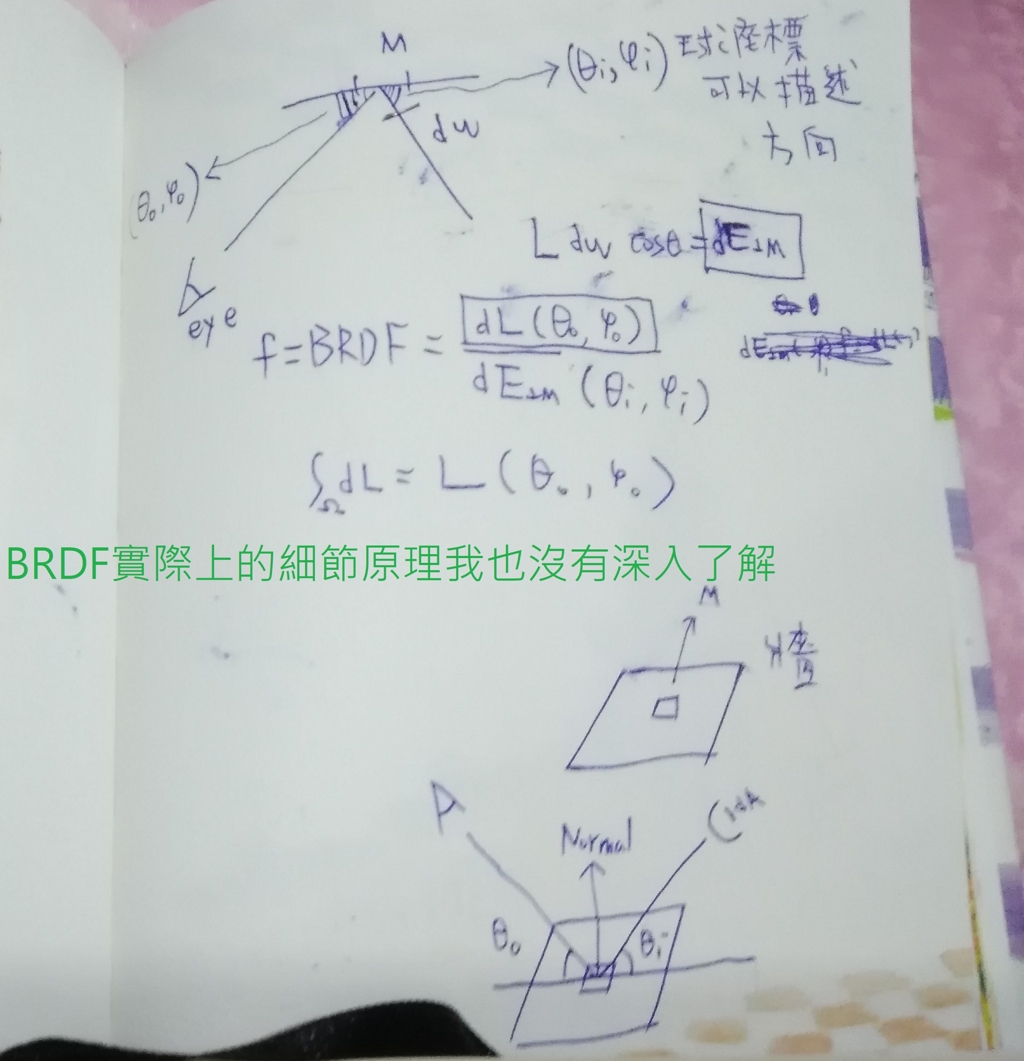 M
(θi, φi) 球座標
可以描述
方向
dw
(θo, φo)
L dw cosθ = dE⊥M
eye
f = BRDF = dL(θo, φo)
dE⊥M (θi, φi)
∫Ω dL = L(θo, φo)
BRDF實際上的細節原理我也沒有深入了解
M
Normal
dA
θo
θi